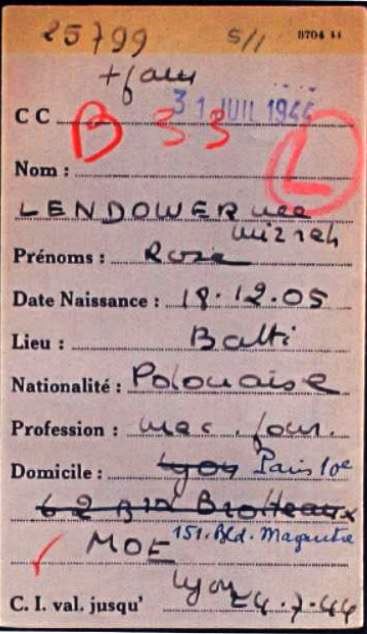 25799 5/1 9704 44
+ fam
31 JUIL 1944
C C B 33 L
Nom :
LENDOWER née
mizrah
Prénoms : Rosa
Date Naissance : 18.12.05
Lieu : Balti
Nationalité : Polonaise
Profession : mec. four.
Domicile : Lyon Paris 10e
62 Brd Brotteaux
151. Bld. Magenta
MOE Lyon
C. I. val. jusqu' 24.7.44